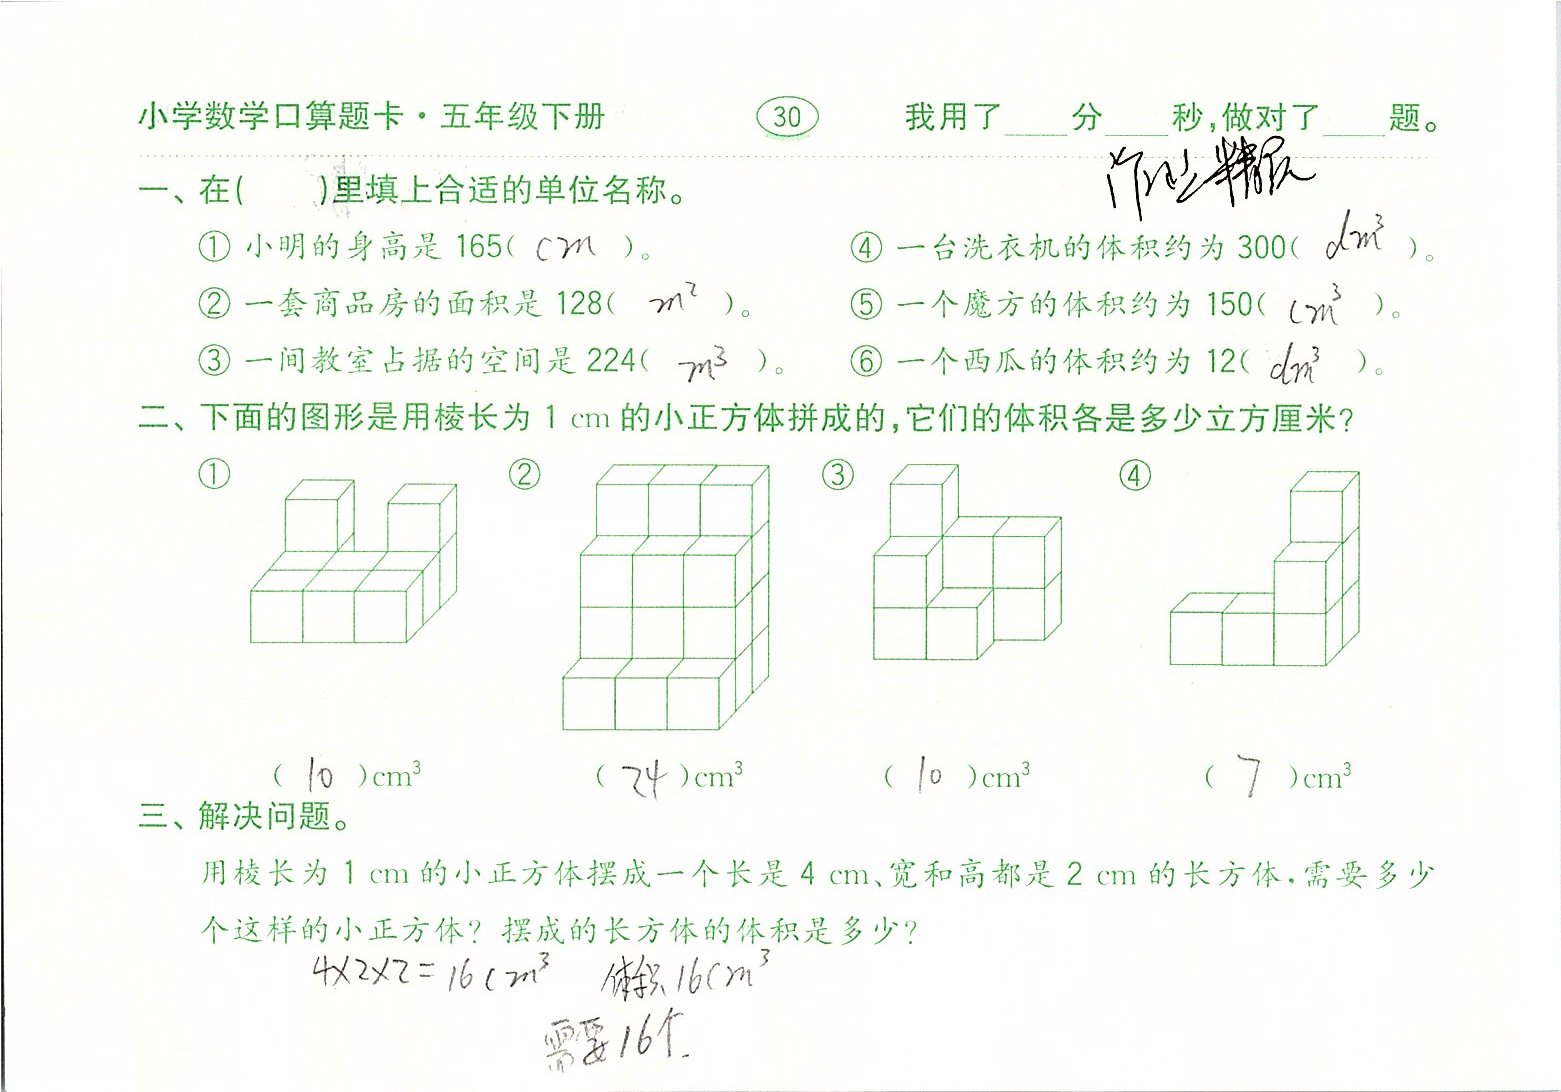 小学数学口算题卡·五年级下册 30 我用了____分____秒,做对了____题。
一、在( )里填上合适的单位名称。
① 小明的身高是 165( cm )。
④ 一台洗衣机的体积约为 300( dm³ )。
② 一套商品房的面积是 128( m² )。
⑤ 一个魔方的体积约为 150( cm³ )。
③ 一间教室占据的空间是 224( m³ )。
⑥ 一个西瓜的体积约为 12( dm³ )。
二、下面的图形是用棱长为 1 cm 的小正方体拼成的,它们的体积各是多少立方厘米?
① ② ③ ④
( 10 )cm³ ( 24 )cm³ ( 10 )cm³ ( 7 )cm³
三、解决问题。
用棱长为 1 cm 的小正方体摆成一个长是 4 cm、宽和高都是 2 cm 的长方体,需要多少
个这样的小正方体? 摆成的长方体的体积是多少?
4×2×2=16cm³ 体积16cm³
需要16个.